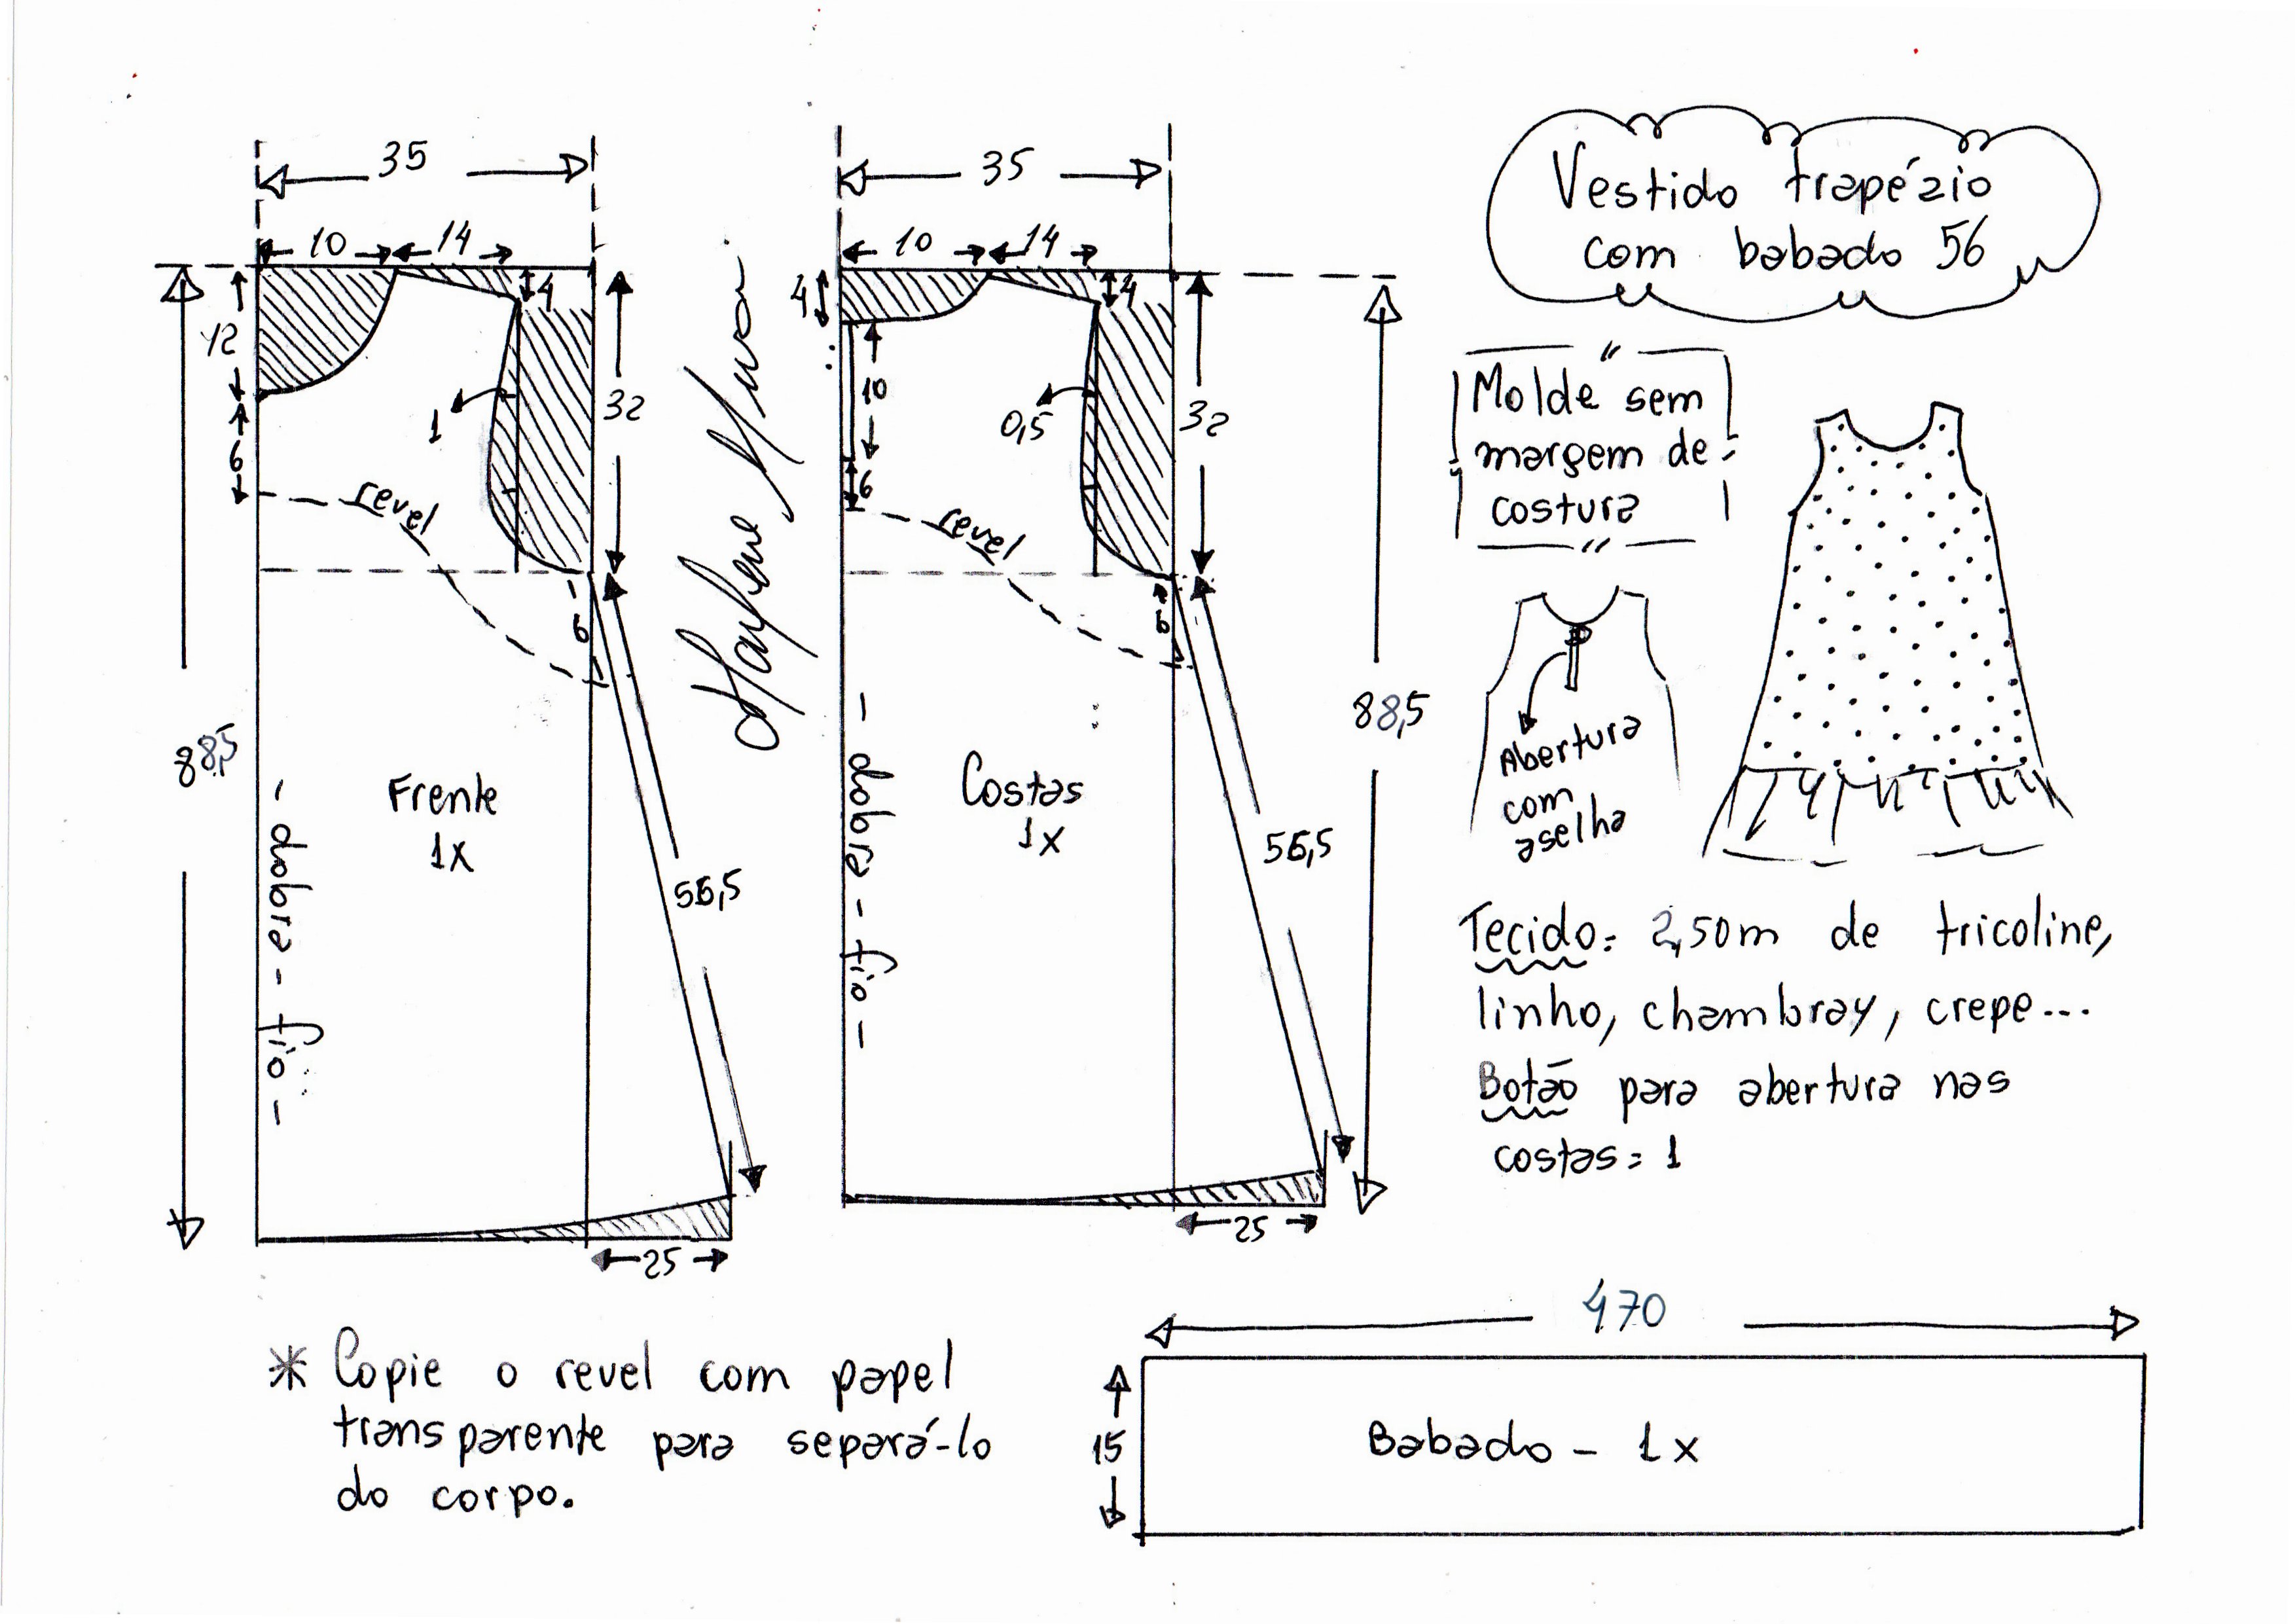 35
10
14
4
12
6
1
32
revel
6
88,5
Frente
1x
- dobra - fio -
56,5
25
Marlene Mukai
35
10
14
4
4
10
0,5
32
6
revel
6
88,5
Costas
1x
- dobra - fio -
56,5
25
Vestido trapézio
com babado 56
Molde sem
margem de
costura
Abertura
com
aselha
Tecido: 2,50m de tricoline,
linho, chambray, crepe...
Botão para abertura nas
costas = 1
* Copie o revel com papel
transparente para separá-lo
do corpo.
470
15
Babado - 1x